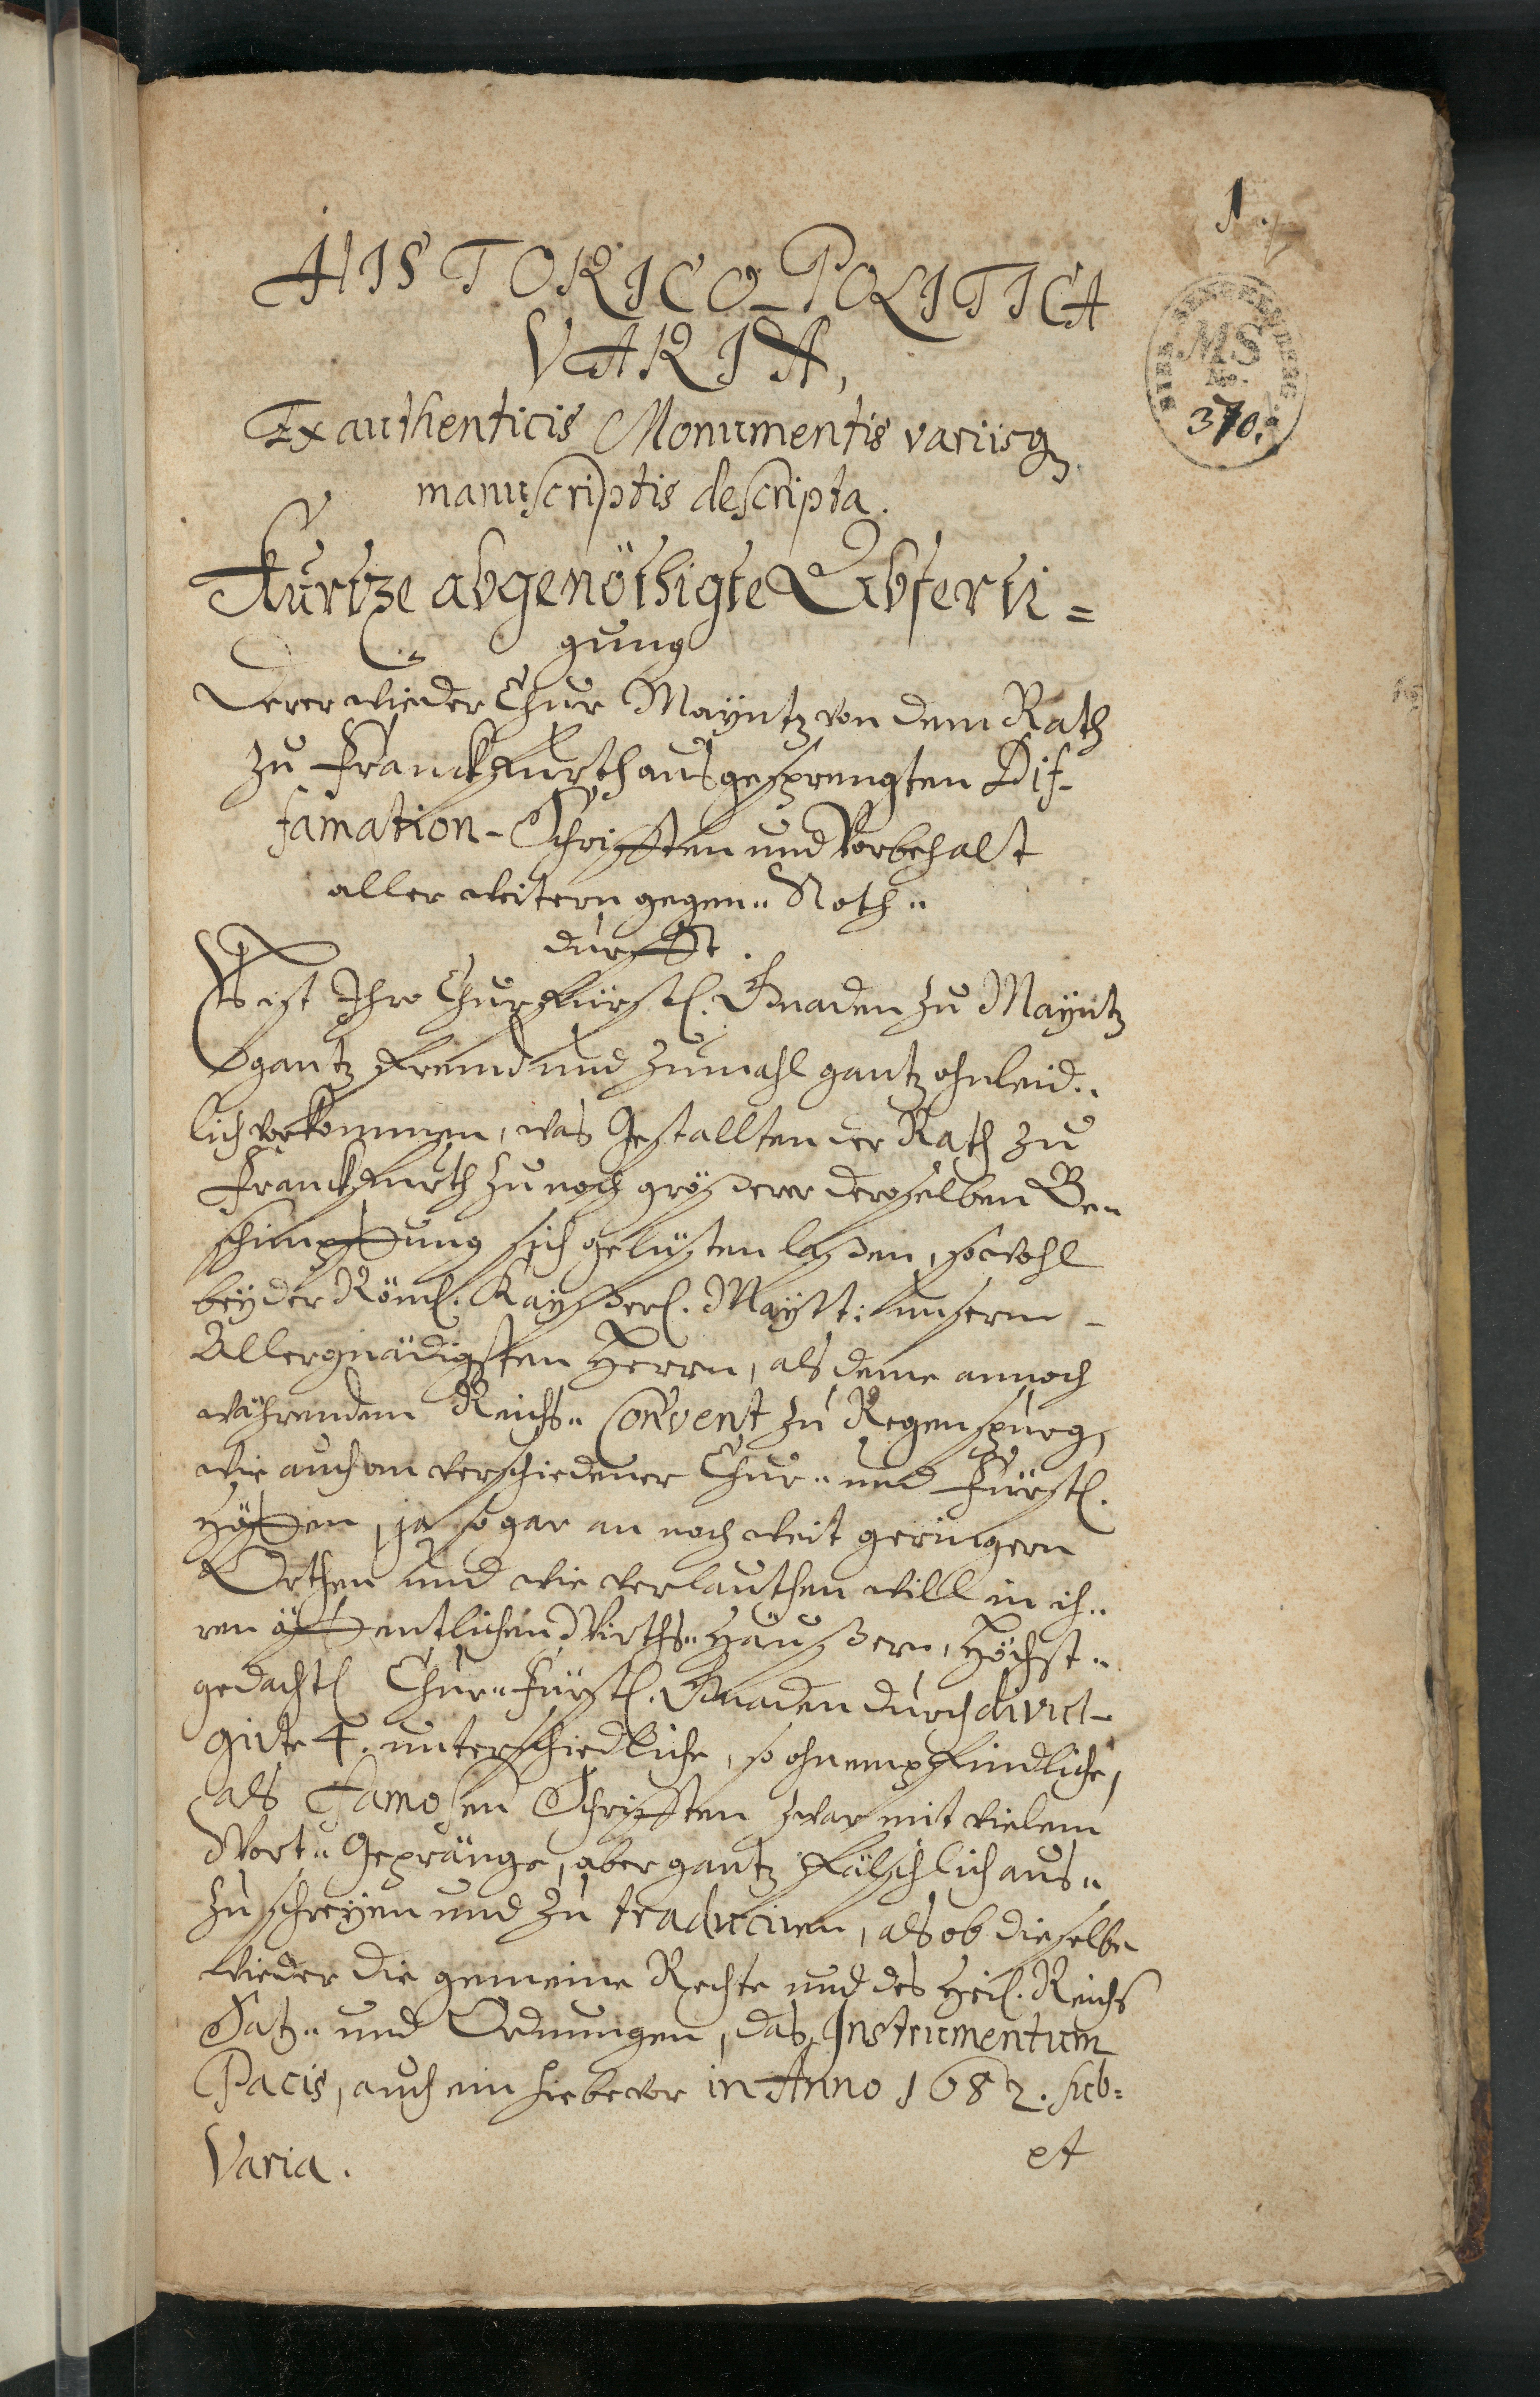 1.
HISTORICO-POLITICA
VARIA,
Ex authenticis Monumentis variisq3
manuscriptis descripta.
BIBL. SENCKENBERG.
MS
No.
370.
Kurtze abgenöthigte Abferti=
gung
Derer wieder Chur Mayntz von dem Rath
zu Franckfurth ausgesprengten Dif-
famation-Schrifften und Vorbehalt
aller weitern gegen- Noth-
durfft.
Es ist Ihro Churfürstl. Gnaden zu Mayntz
gantz fremd und zumahl gantz ohnleid-
lich vorkommen, was Gestallten der Rath zu
Franckfurth zu noch größerer deroselben Be-
schimpffung sich gelüsten laßen, sowohl
bey der Röml. Kayßerl. Maytt: unserm
Allergnädigsten Herrn, als deme annoch
währendem Reichs- Convent zu Regenspurg,
wie auch an verschiedener Chur- und Fürstl.
Höffen, ja so gar an noch weit geringern
Orthen und wie verlauthen will in ih-
ren öffentlichen Wirths- Häußern, Höchst-
gedachtl Chur- Fürstl. Gnaden durch divul-
girte 4. unterschiedliche, so ohnempfindliche,
als Famosen Schrifften zwar mit vielem
Wort- Gepränge, aber gantz fälschlich aus-
zuschreyen und zu traduciren, als ob dieselbe
wieder die gemeine Rechte und des Heil. Reichs
Satz- und Ordnungen, das Instrumentum
Pacis, auch ein hiebevor in Anno 1682. sub=
Varia. et